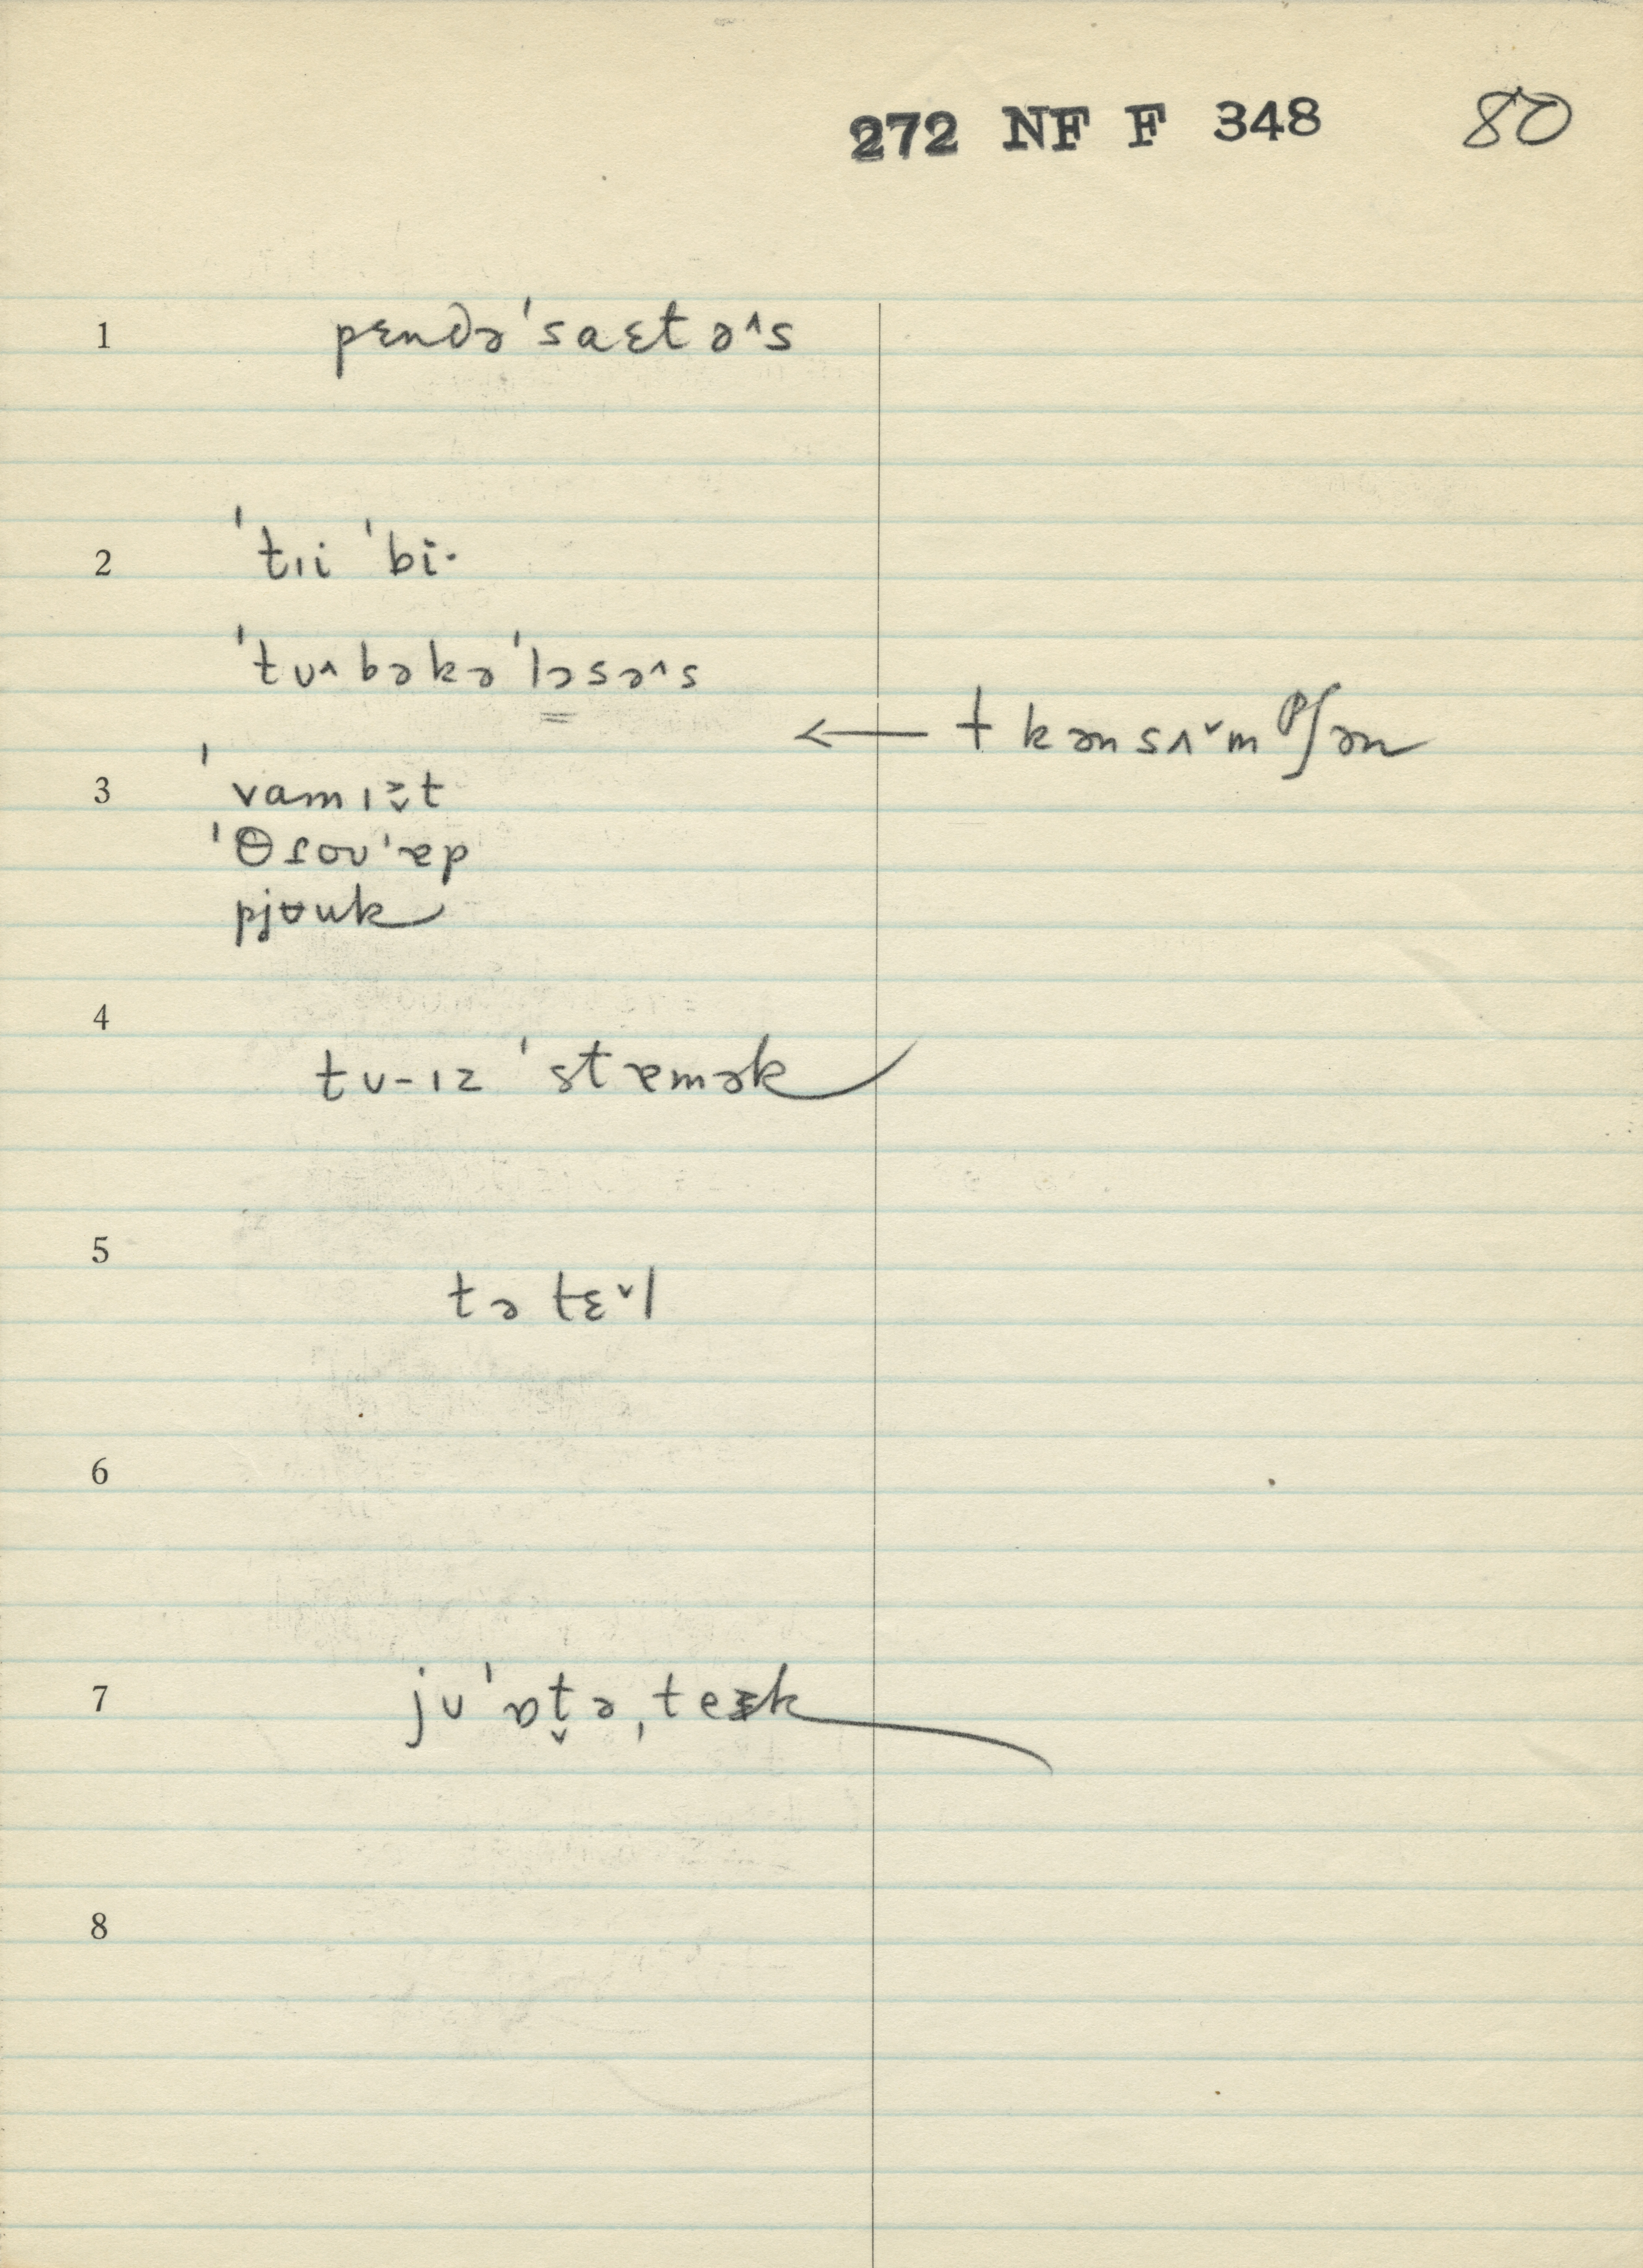 272 NF F 348 80
1 pɛndə'saɛtə^s
2 'tıi 'bi·
'tʊ^bəkə'ləsə^s
← † kənsʌˇmᵖʃən
3 'vamız̬t
'θɾoʊ'ɐp
pjɵuk
4
tʊ-ız 'stɐmək
5
tə tɛˇl
6
7 jʊ'ɒt̬ə,teək
8